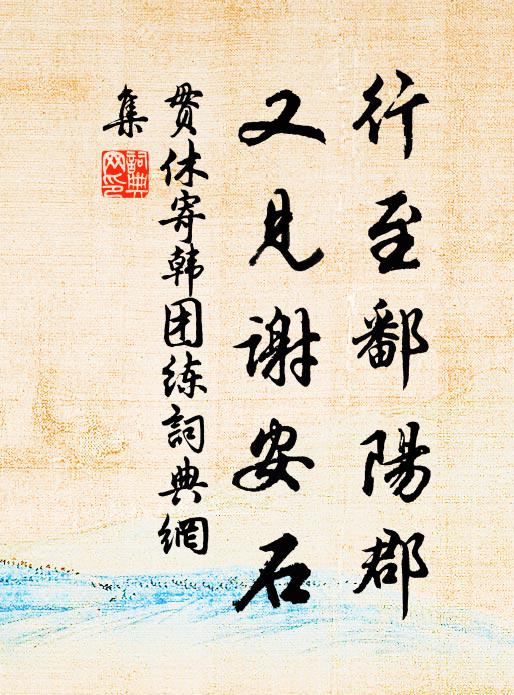 行至鄱陽郡
又見谢安石
贯休寄韩团练詞典網
集
詞典
网印